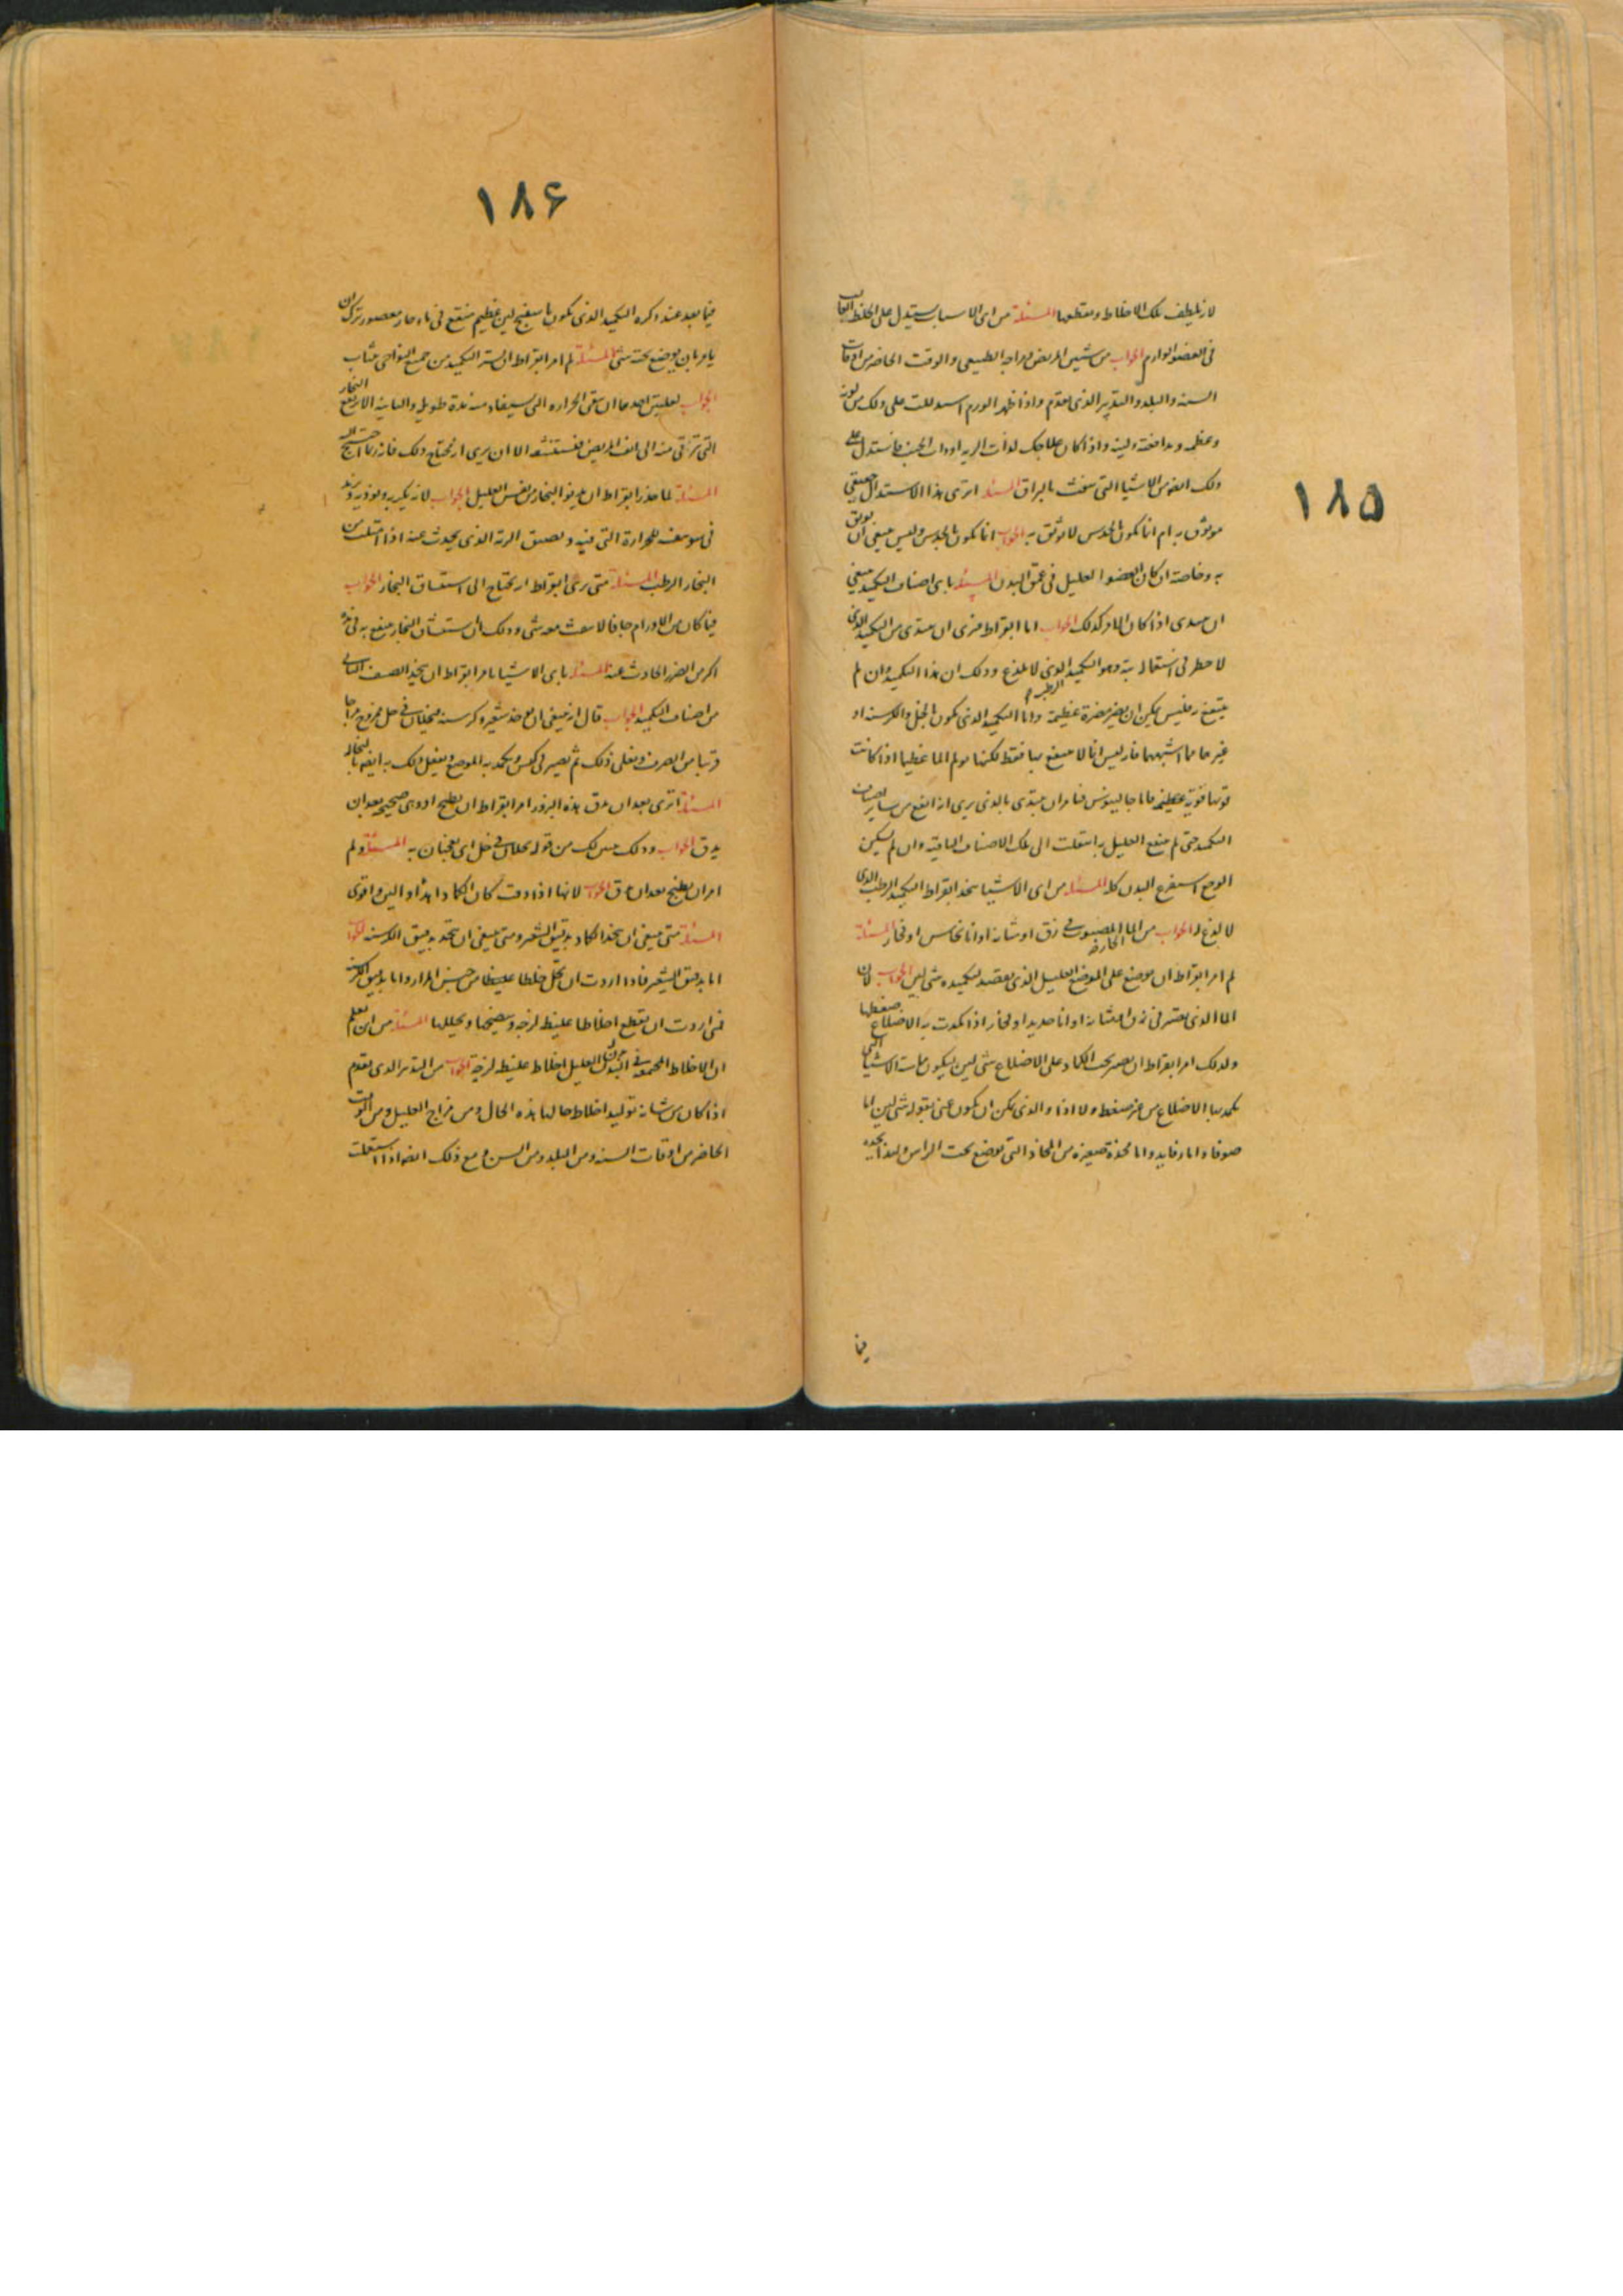 ١٨۵
لانه يلطف تلك الاخلاط ويقطعها المسئلة من اى الاسباب يستدل على الخلط الغالب
فى العضو الوارم الجواب من سن المريض ومزاجه الطبيعى والوقت الحاضر من اوقات
السنه والبلد والتدبير الذى تقدم واذا ظهر الورم استدللت على ذلك من لونه
وعظمه ومدافعته ولينه واذا كان علاجك لذات الريه او ذات الجنب فاستدل على
ذلك ايضا من الاشيا التى تنفث بالبزاق المسئلة اترى هذا الاستدلال حقيقى
موثوق به ام انما يكون بالحدس لا يوثق به الجواب انما يكون بالحدس وليس ينبغى ان يوثق
به وخاصة ان كان العضو العليل فى عمق البدن المسئلة باى اصناف التكميد ينبغى
ان يبتدى اذا كان الامر كذلك الجواب اما ابقراط فيرى ان يبتدى من التكميد الذى
لا خطر فى استعماله بتة وهو التكميد الرطب الذى لا يلذع وذلك ان هذا التكميد وان لم
ينتفع به فليس يمكن ان يضر مضرة عظيمة واما التكميد الذى يكون بالخل والكرسنه او
غيرها مما اشبهها فانه ليس انما لا ينتفع بها فقط لكنها تولم الما عظيما اذا كانت
قوتها قوية عظيمه فاما جالينوس فيامر ان يبتدى بالذى يرى انه انفع من ساير اصناف
التكميد حتى لم ينتفع العليل به انتقلت الى تلك الاصناف الباقيه وان لم يسكن
الوجع استفرغ البدن كله المسئلة من اى الاشيا يتخذ ابقراط التكميد الرطب الذى
لا لذع له الجواب من الما الحار المصبوب فى زق او مثانه او انا نحاس او فخار المسئلة
لم امر ابقراط ان يوضع على الموضع العليل الذى يقصد لتكميده شى لين الجواب لان
الما الذى يصير فى زق او مثانه او انا حديد او فخار اذا كمدت به الاضلاع ضغطها
ولذلك امر ابقراط ان يصير تحت الكماد على الاضلاع شى لين ليكون ملمس الاشيا التى
يكمد بها الاضلاع من غير ضغط ولا اذا والذى يمكن ان يكون عنى بقوله شى لين اما
صوفا واما رفايد واما مخدة صغيره من المخاد التى توضع تحت الراس ولهذا نجده
فيما
١٨۶
فيما بعد عند ذكره التكميد الذى يكون باسفنج لين عظيم منقع فى ماء حار معصور ترك ان
يامر بان يوضع تحته شى المسئلة لم امر ابقراط ان يستر التكميد من جميع النواحى بثياب
الجواب لعلتين احدهما ان تبقى الحراره التى يستفاد منه مدة طويله والثانيه الا يرتفع البخار
التى تترقى منه الى انف المريض فيستنشقه الا ان يرى انه محتاج الى ذلك فانه ربما احتيج اليه
المسئلة لما حذر ابقراط ان يدنو البخار من نفس العليل الجواب لانه يكربه ويوذيه ويزيد
فى سو تنفسه للحرارة التى فيه ولضيق الريه الذى يحدث عنه اذا امتلت من
البخار الرطب المسئلة متى يرى ابقراط انه يحتاج الى استنشاق البخار الجواب
فيما كان من الاورام جافا لا ينفث معه شى وذلك ان استنشاق البخار ينتفع به فى هذه
اكثر من الضرر الحادث عنه المسئلة باى الاشيا يامر ابقراط ان يتخذ الصنف الثانى
من اصناف التكميد الجواب قال انه ينبغى ان يوخذ شعير وكرسنه فيخلطان فى خل ممزوج مزاجا
قريبا من الصرف ويغلى ذلك ثم يصير فى كيس ويكمد به الموضع ويفعل ذلك به ايضا بالنخاله
المسئلة اترى بعد ان تدق هذه البزور امر ابقراط ان تطبخ او وهى صحيحه بعد ان
يدق الجواب وذلك يتبين لك من قوله يخلطان فى خل اى يعجنان به المسئلة ولم
امر ان يطبخ بعد ان تدق الجواب لانها اذا دقت كان الكماد اهدا والين واقوى
المسئلة متى ينبغى ان يتخذ الكماد بدقيق الشعير ومتى ينبغى ان يتخذ بدقيق الكرسنه الجواب
اما بدقيق الشعير فاذا اردت ان تحلل خلطا غليظا من جنس المرار واما بدقيق الكرسنه
فمتى اردت ان تقطع اخلاطا غليظه لزجه وتنضجها وتحللها المسئلة من اين تعلم
ان الاخلاط المجتمعه فى بدن العليل اخلاط غليظه لزجه الجواب من التدبير الذى تقدم
اذا كان من شانه توليد اخلاط حالها هذه الحال ومن مزاج العليل ومن الوقت
الحاضر من اوقات السنه ومن البلد ومن السن ومع ذلك ايضا اذا استعملت